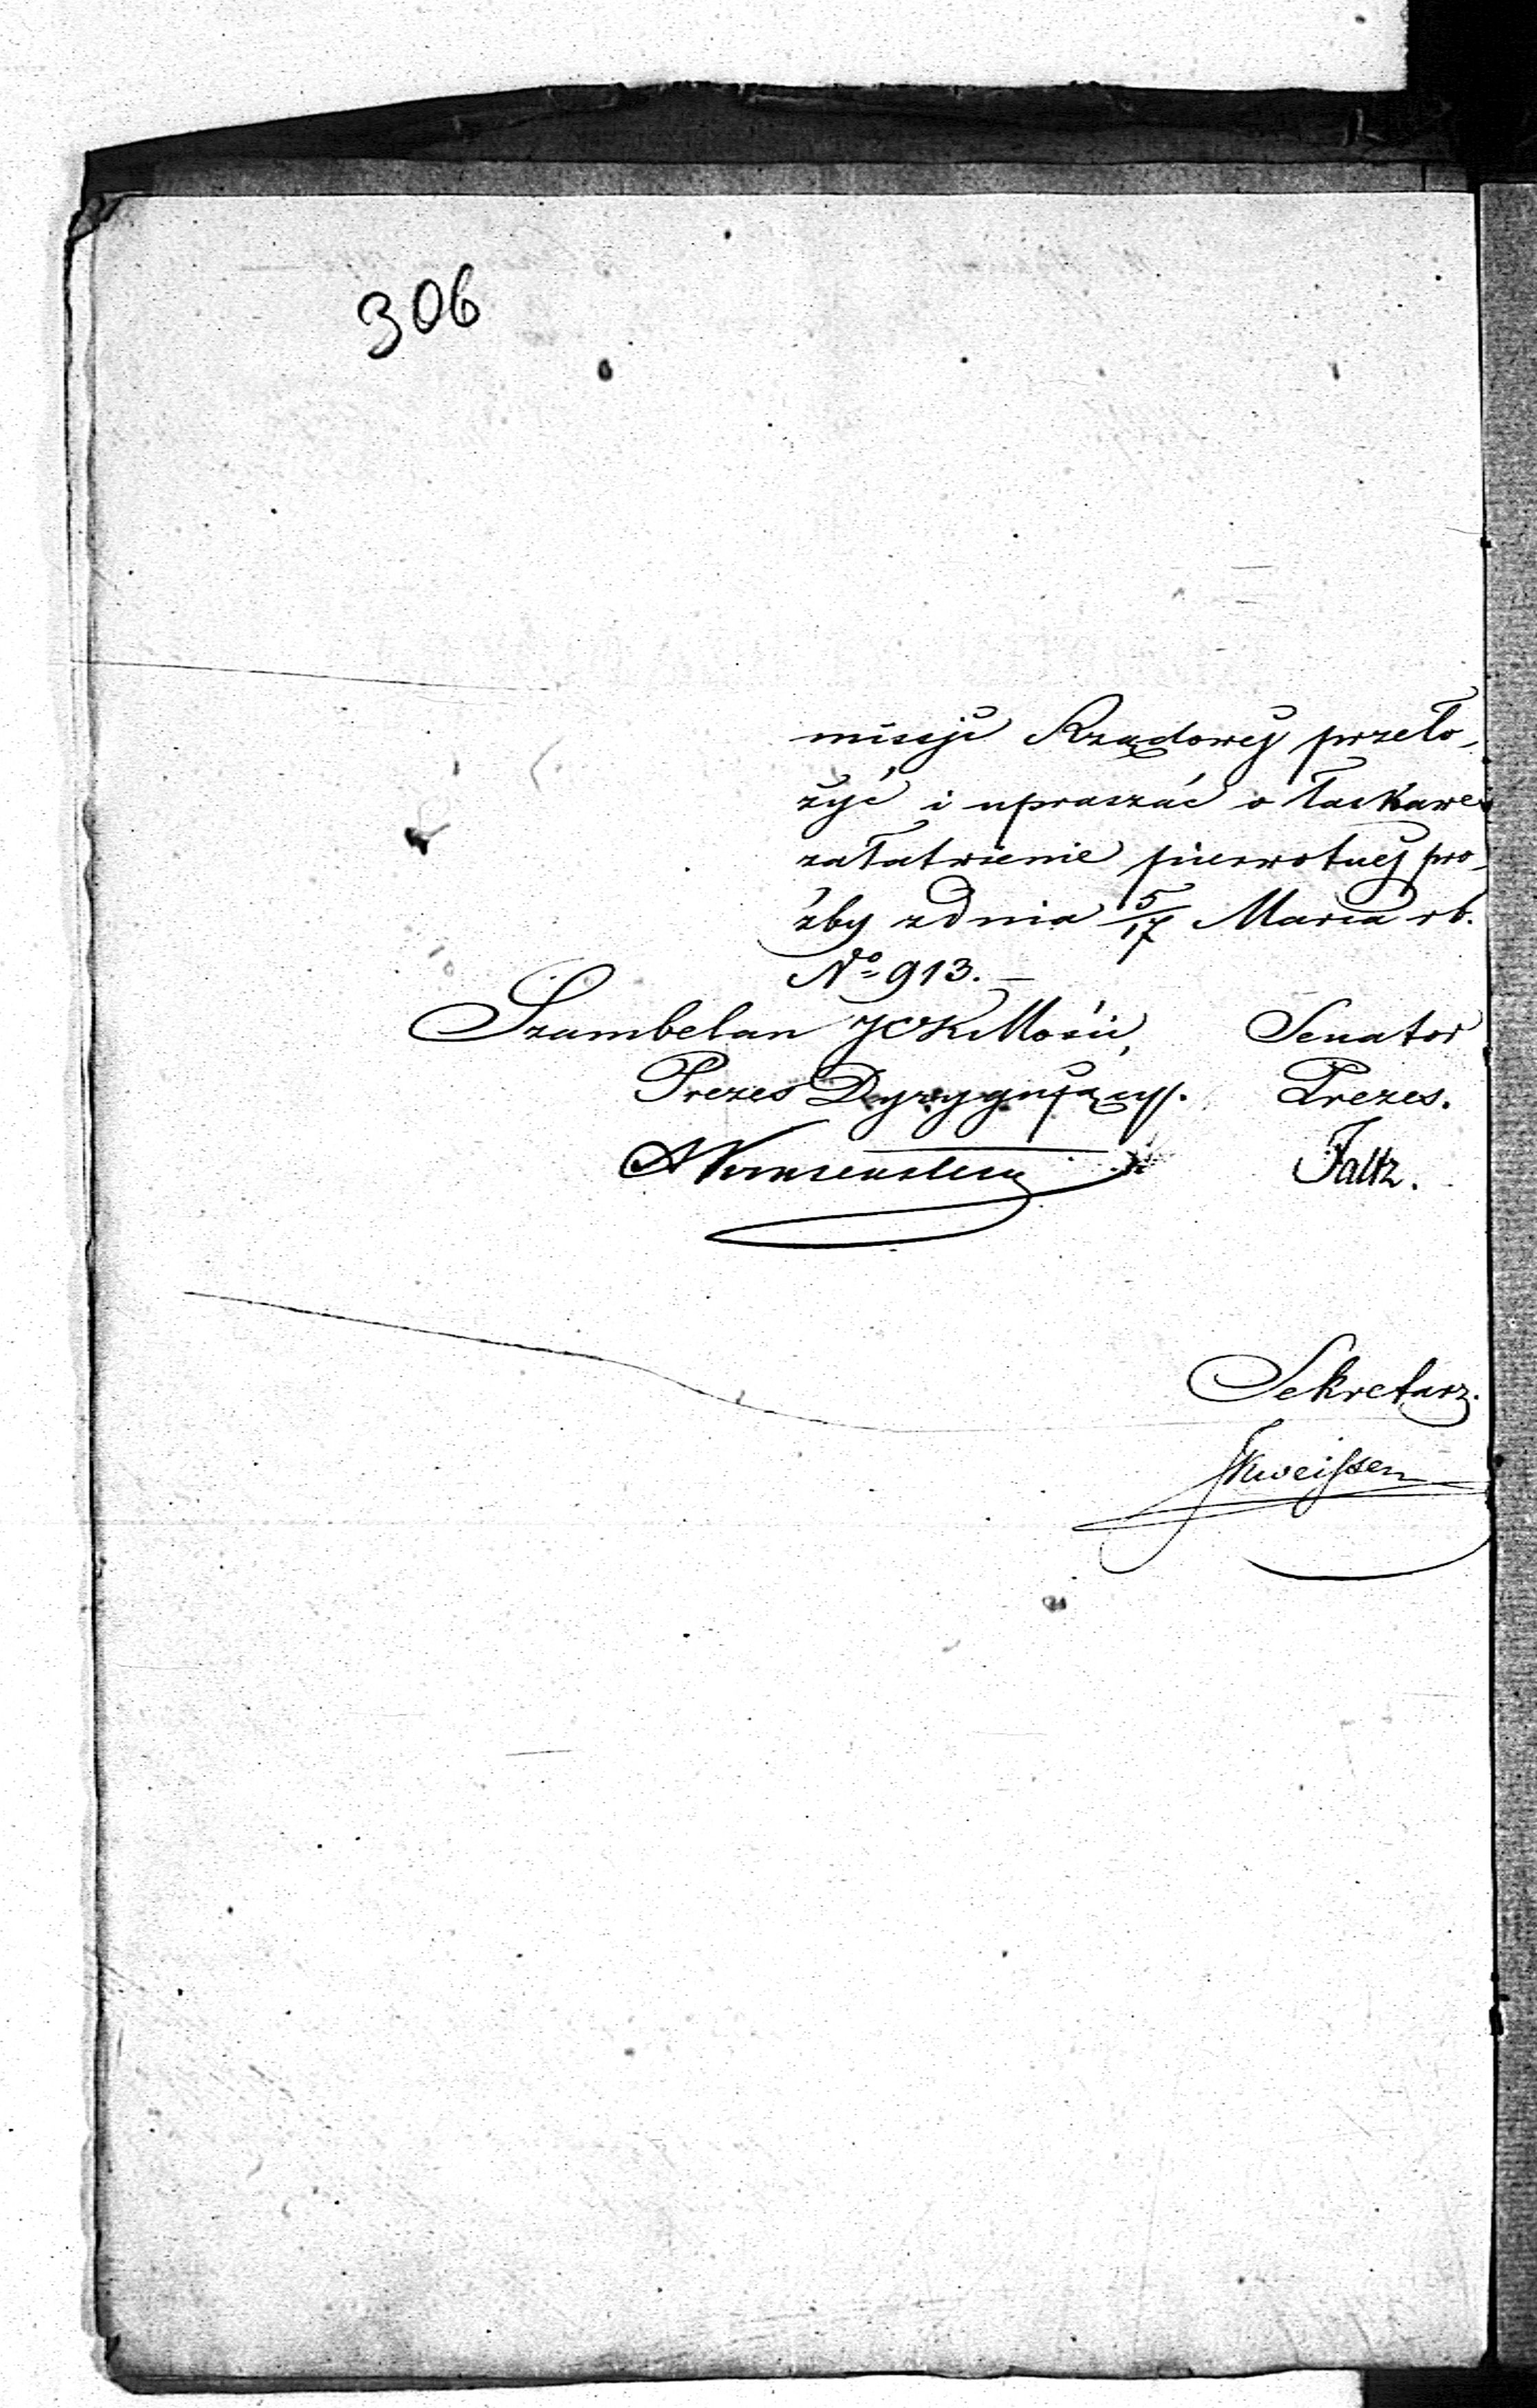 306
missji Rządowej przeło,
żyć i upraszać o łaskawe
załatwienie pierwotnej pro,
źby z dnia 5/17 Marca rb.
No 913. —
Szambelan JCKMości, Senator
Prezes Dyrygujący. Prezes.
Faltz.
Sekretarz.